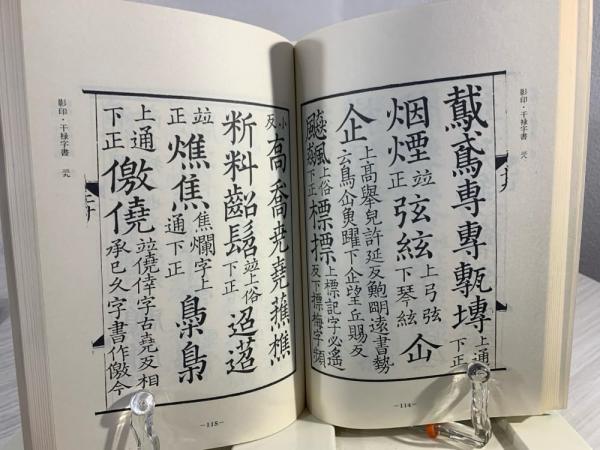 影印・干禄字書
鳶専專甎塼上通下正
烟煙並正弦絃上弓弦下琴絃仚
企上高舉皃許延反鮑明遠書勢云鳥仚魚躍下企望丘賜反
上俗下正標摽上標記字必遥反下摽梅字頻
—114—
小反喬尭堯蕉樵
料齠髫並上俗下正迢
並正燋焦焦爛字上通下正梟
上通下正儌僥並僥倖字古堯反相承已久字書作儌今
影印・干禄字書
—115—